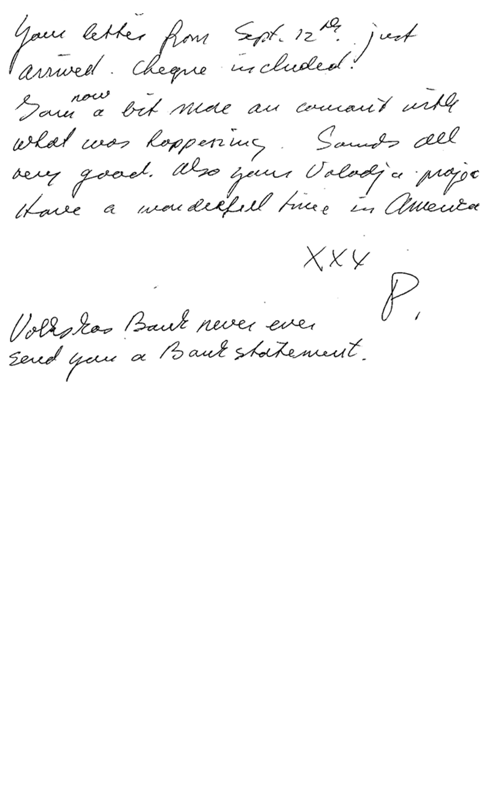 Your letter from Sept. 12th. just
arrived. Cheque included!
I am now a bit more au courant with
what was happening. Sounds all
very good. Also your Volodja projec
Have a wonderfull time in America
XXX
P.
Volkskas Bank never ever
send you a Bank statement.